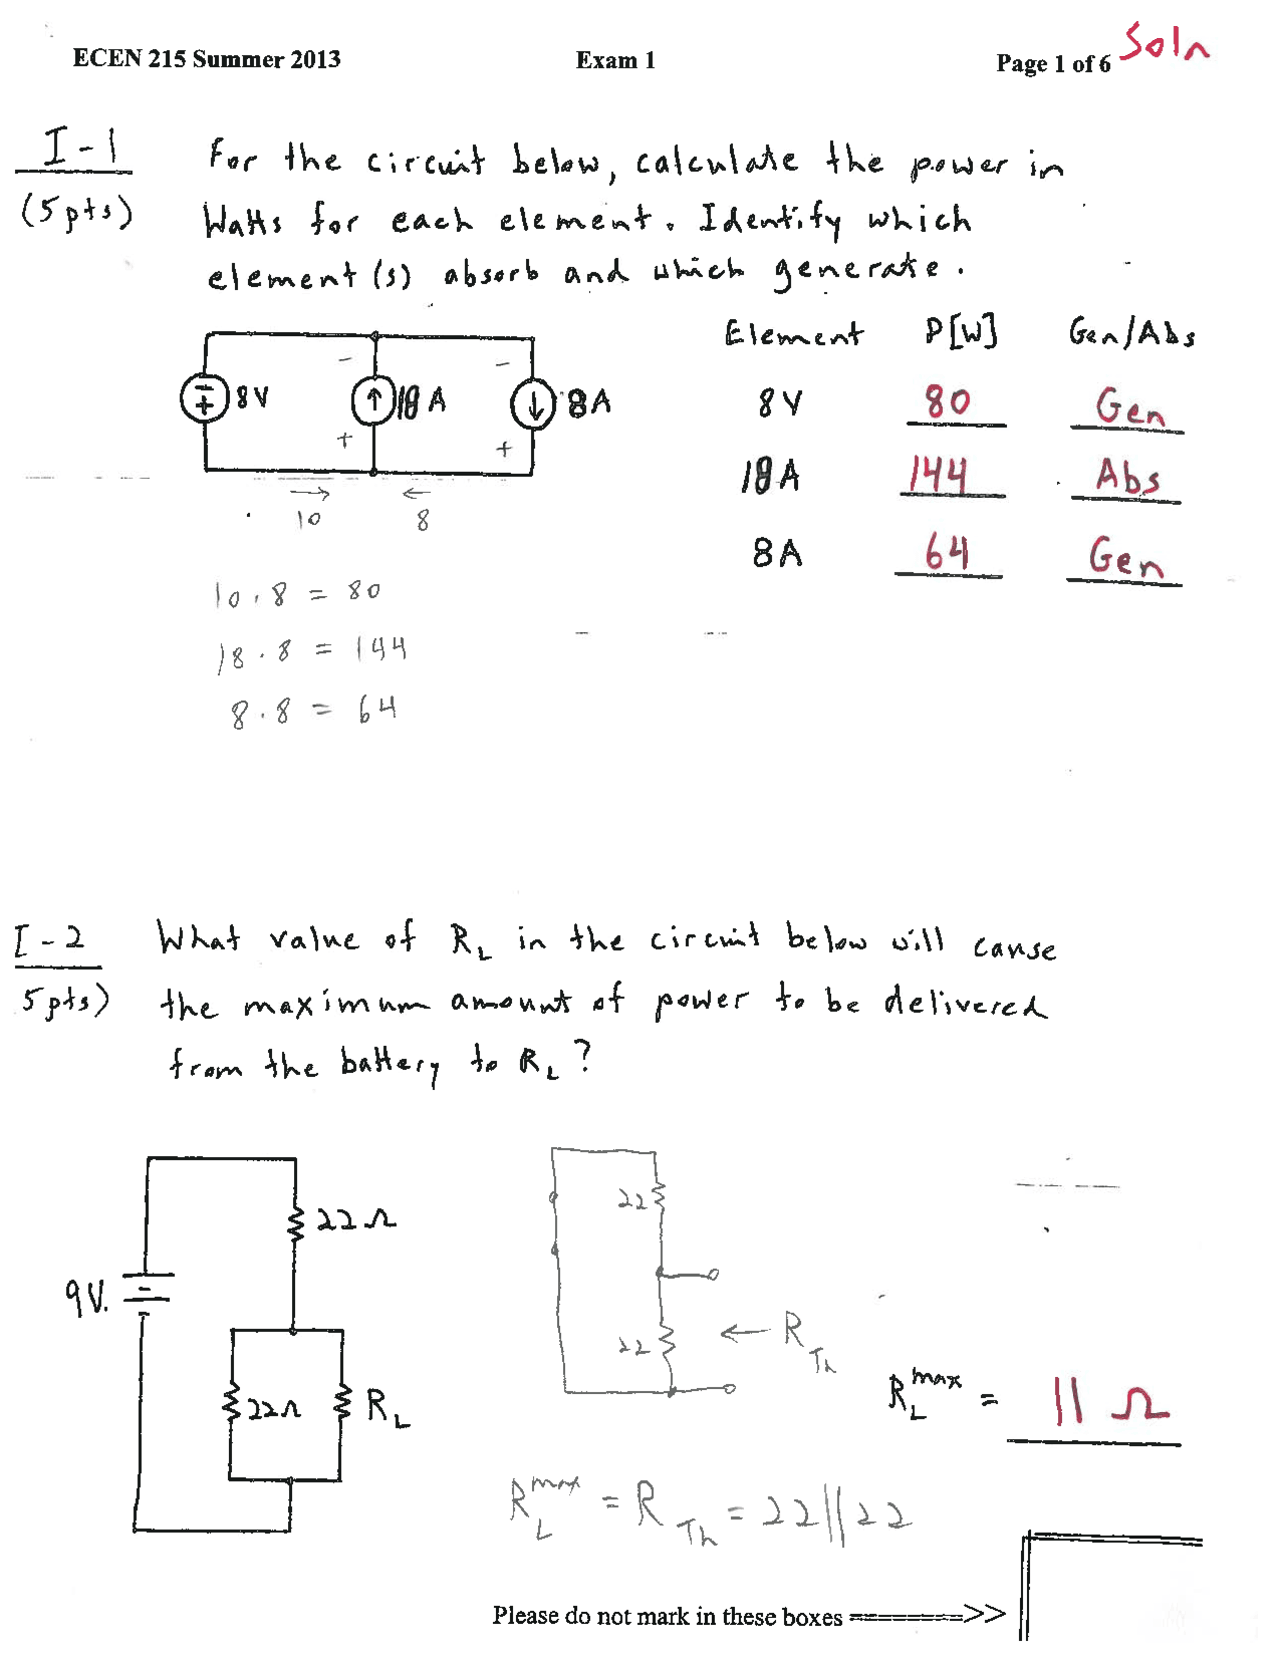 ECEN 215 Summer 2013 Exam 1 Page 1 of 6 Soln
I-1 For the circuit below, calculate the power in
(5 pts) Watts for each element. Identify which
element(s) absorb and which generate.
Element P[W] Gen/Abs
- +
8V
- +
18 A
- +
8A
8V 80 Gen
18A 144 Abs
8A 64 Gen
→ ←
10 8
10 · 8 = 80
18 · 8 = 144
8 · 8 = 64
I-2 What value of R_L in the circuit below will cause
5 pts) the maximum amount of power to be delivered
from the battery to R_L?
22 Ω
9V.
22Ω R_L
22
22 ← R_Th
R_L^max = 11 Ω
R_L^max = R_Th = 22||22
Please do not mark in these boxes ========>>